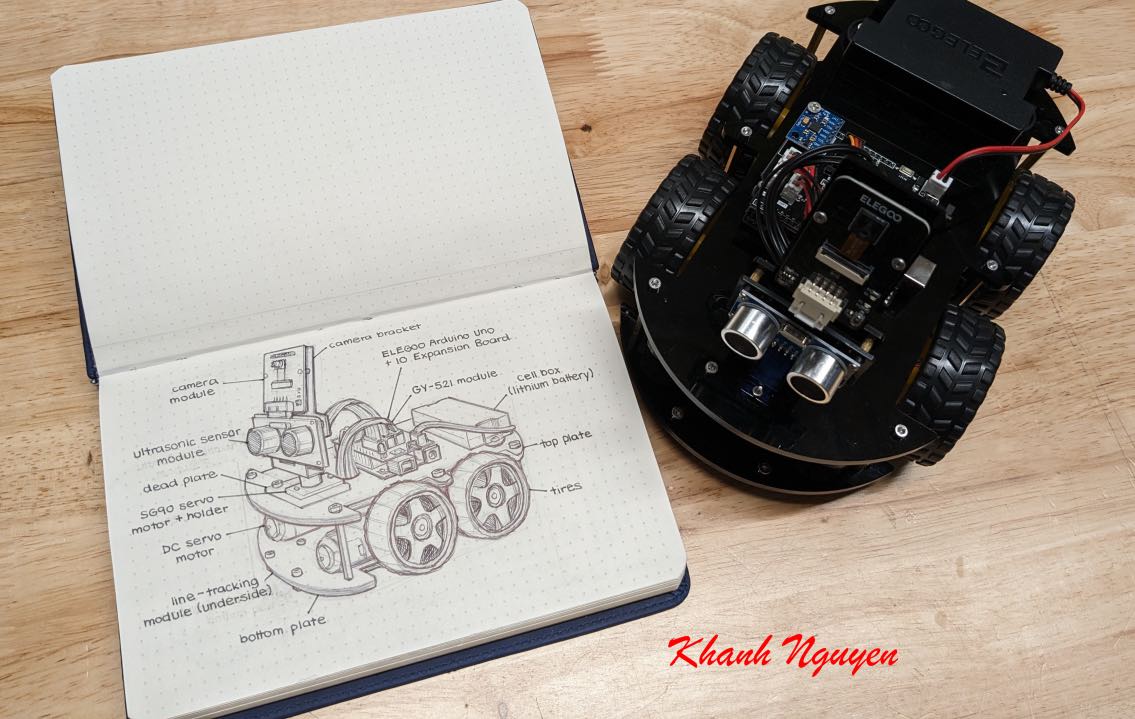 ELEGOO
ELEGOO
camera bracket
ELEGOO Arduino Uno
+ IO Expansion Board
camera
module
GY-521 module
cell box
(lithium battery)
ultrasonic sensor
module
top plate
dead plate
tires
SG90 servo
motor + holder
DC servo
motor
line-tracking
module (underside)
bottom plate
Khanh Nguyen